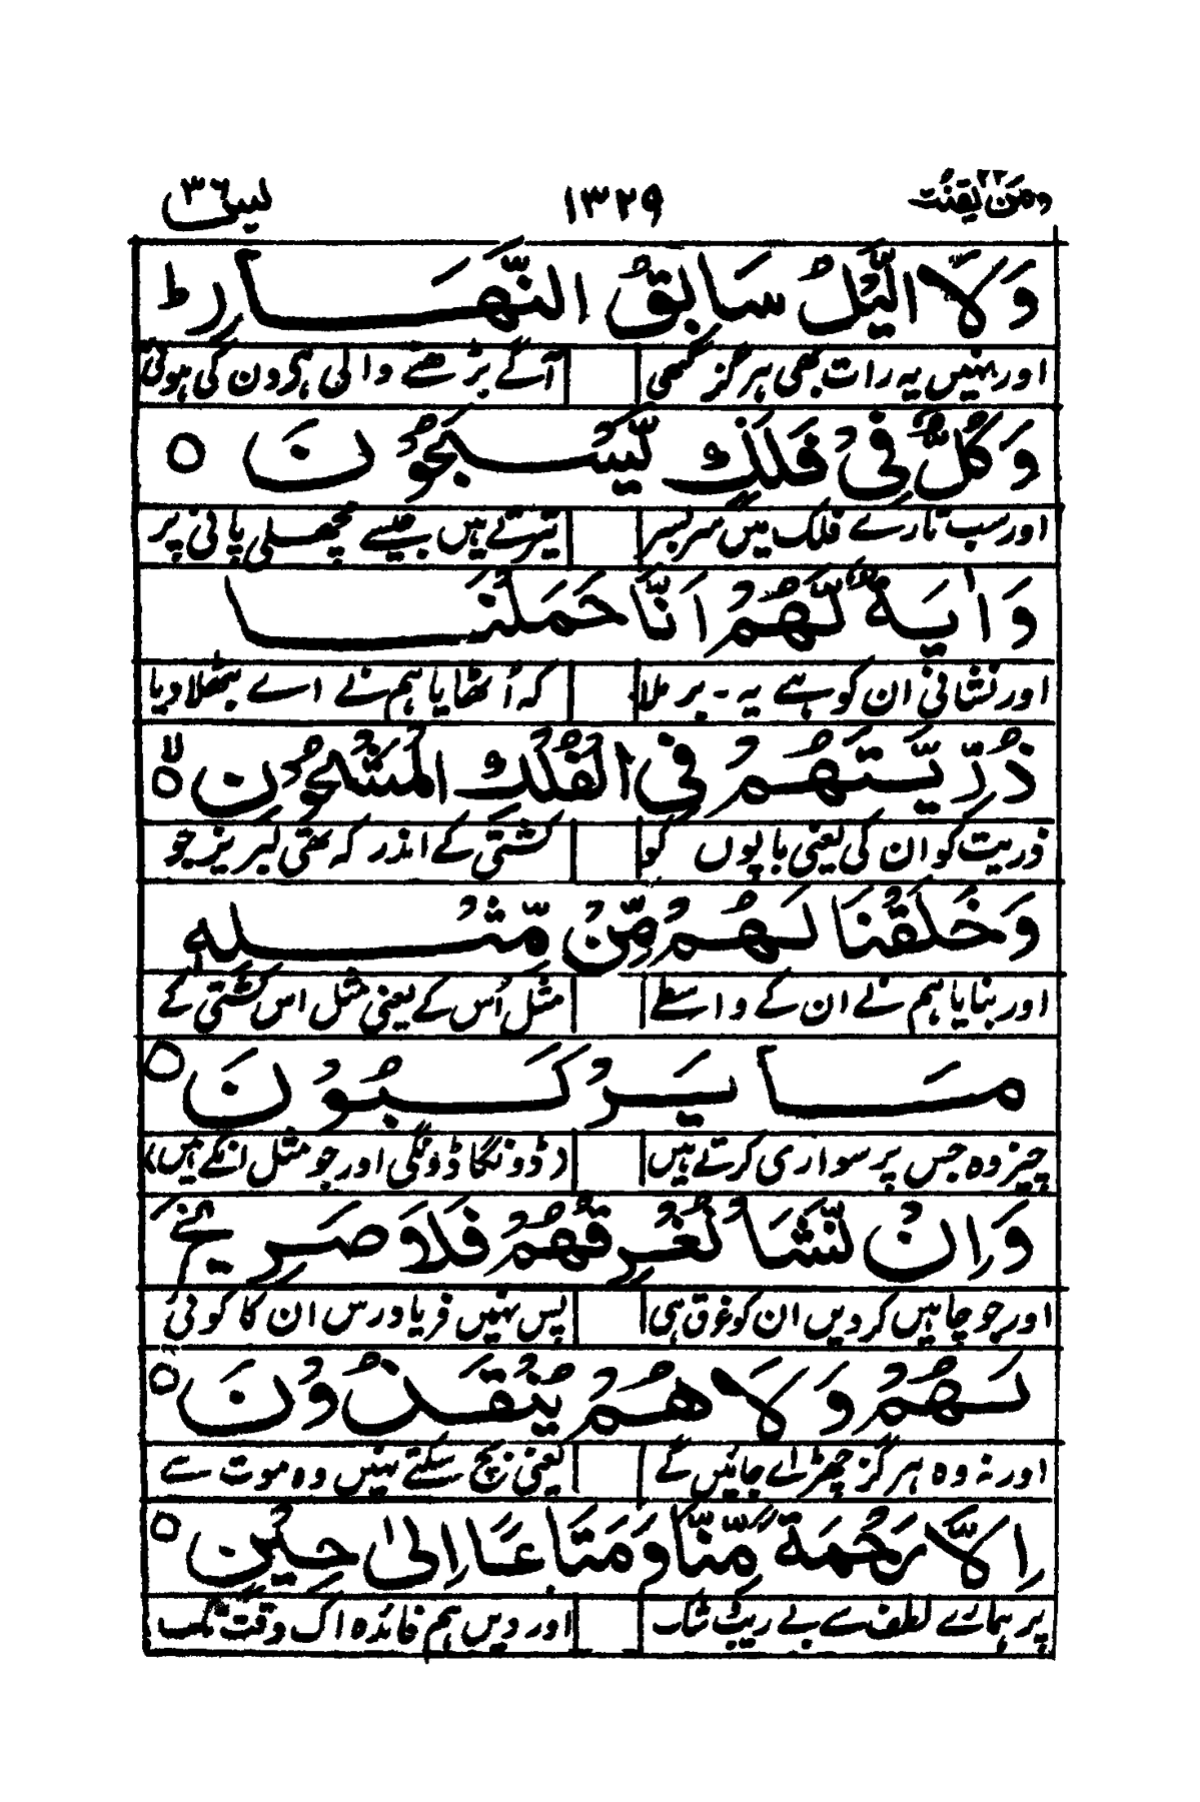 ومن يقنت ٢٢ ١٣٢٩ يس ٣٦
وَلَا الَّيْلُ سَابِقُ النَّهَارِ ط
اور نہیں یہ رات بھی ہرگز کبھی آگے بڑھنے والی ہی دن کی ہوئی
وَكُلٌّ فِي فَلَكٍ يَّسْبَحُوْنَ ○
اور سب تارے فلک میں سربسر تیرتے ہیں جیسے مچھلی پانی پر
وَاٰيَةٌ لَّهُمْ اَنَّا حَمَلْنَا
اور نشانی ان کو ہے یہ - بر ملا کہ اُٹھایا ہم نے اے بٹھلا دیا
ذُرِّيَّتَهُمْ فِي الْفُلْكِ الْمَشْحُوْنِ ○ لا
ذریت کو ان کی یعنی باپوں کو کشتی کے اندر کہ تھی لبریز جو
وَخَلَقْنَا لَهُمْ مِّنْ مِّثْلِهٖ
اور بنایا ہم نے ان کے واسطے مثل اُس کے یعنی مثل اس کشتی کے
مَا يَرْكَبُوْنَ ○
چیز وہ جس پر سواری کرتے ہیں (ڈونگا ڈونگی اور جو مثل انکے ہیں)
وَاِنْ نَّشَأْ نُغْرِقْهُمْ فَلَا صَرِيْخَ
اور جو چاہیں کر دیں ان کو غرق ہی پس نہیں فریادرس ان کا کوئی
لَهُمْ وَلَا هُمْ يُنْقَذُوْنَ ○
اور نہ وہ ہرگز چھڑائے جائیں گے یعنی بچ سکتے نہیں وہ موت سے
اِلَّا رَحْمَةً مِّنَّا وَمَتَاعًا اِلٰى حِيْنٍ ○
پر ہمارے لطف سے بے ریب شک اور دیں ہم فائدہ اک وقت تک